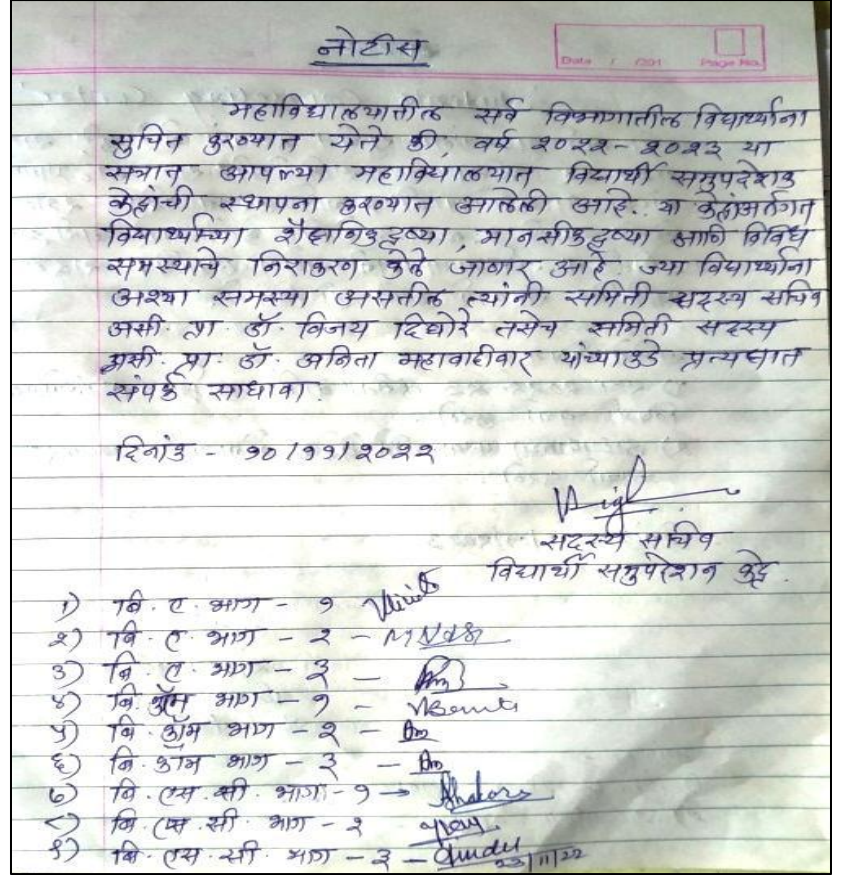 नोटीस
Date / /201 Page No.
महाविद्यालयातील सर्व विभागातील विद्यार्थ्यांना
सुचित करण्यात येते की, वर्ष २०२२-२०२३ या
सत्रात आपल्या महाविद्यालयात विद्यार्थी समुपदेशक
केंद्राची स्थापना करण्यात आलेली आहे. या केंद्राअंर्तगत
विद्यार्थ्यांच्या शैक्षणिकदृष्ट्या, मानसीकदृष्ट्या आणि विविध
समस्याचे निराकरण केले जाणार आहे ज्या विद्यार्थ्यांना
अश्या समस्या असतील त्यांनी समिती सदस्य सचिव
असी. प्रा. डॉ. विजय दिघोरे तसेच समिती सदस्य
असी. प्रा. डॉ. अनिता महावादीवार यांच्याकडे प्रत्यक्षात
संपर्क साधावा.
दिनांक - १०/११/२०२२
सदस्य सचिव
विद्यार्थी समुपदेशन केंद्र.
१) बि. ए. भाग - १
२) बि. ए. भाग - २ -
३) बि. ए. भाग - ३ -
४) बि. कॉम भाग - १ -
५) बि. कॉम भाग - २ -
६) बि. कॉम भाग - ३ -
७) बि. एस. सी. भाग - १ →
८) बि. एस. सी. भाग - २
९) बि. एस. सी. भाग - ३ - 23/11/22